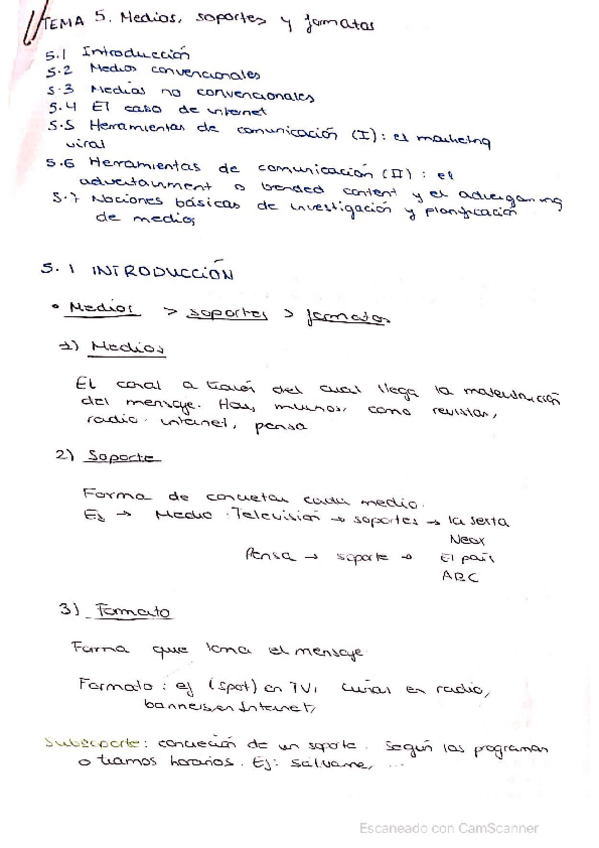 TEMA 5. Medios, soportes y formatos
5.1 Introducción
5.2 Medios convencionales
5.3 Medios no convencionales
5.4 El caso de internet
5.5 Herramientas de comunicación (I): el marketing
viral
5.6 Herramientas de comunicación (II): el
advertainment o branded content y el advergaming
5.7 Nociones básicas de investigación y planificación
de medios
5.1 INTRODUCCIÓN
• Medios > soportes > formatos
1) Medios
El canal a través del cual llega la
del mensaje. Hay muchos, como revistas,
radio, internet, prensa
2) Soporte
Forma de concretar cada medio.
Ej → Medio: Televisión → soportes → la sexta
Neox
Prensa → soporte → El país
ABC
3) Formato
Forma que toma el mensaje
Formato: ej (spot) en TV, cuñas en radio,
banners en Internet,
Subsoporte: concreción de un soporte. Según los programas
o tramos horarios. Ej: sálvame, ...
Escaneado con CamScanner